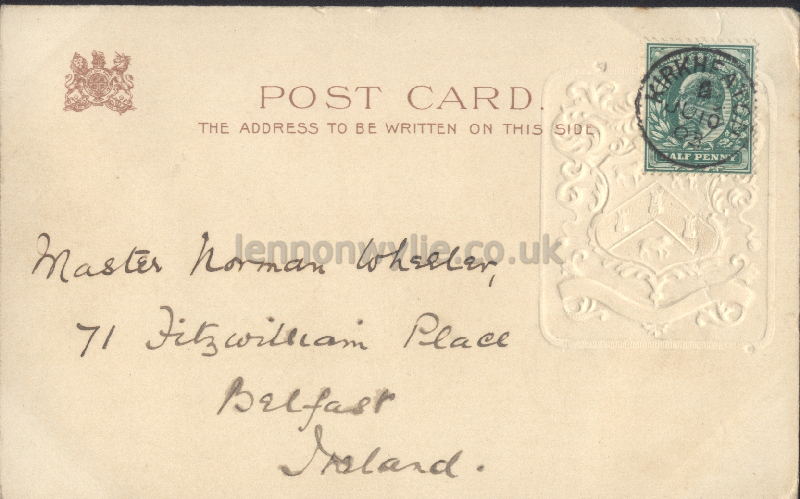 POST CARD.
THE ADDRESS TO BE WRITTEN ON THIS SIDE.
HALF PENNY
lennonwylie.co.uk
Master Norman Wheeler,
71 Fitzwilliam Place
Belfast
Ireland.